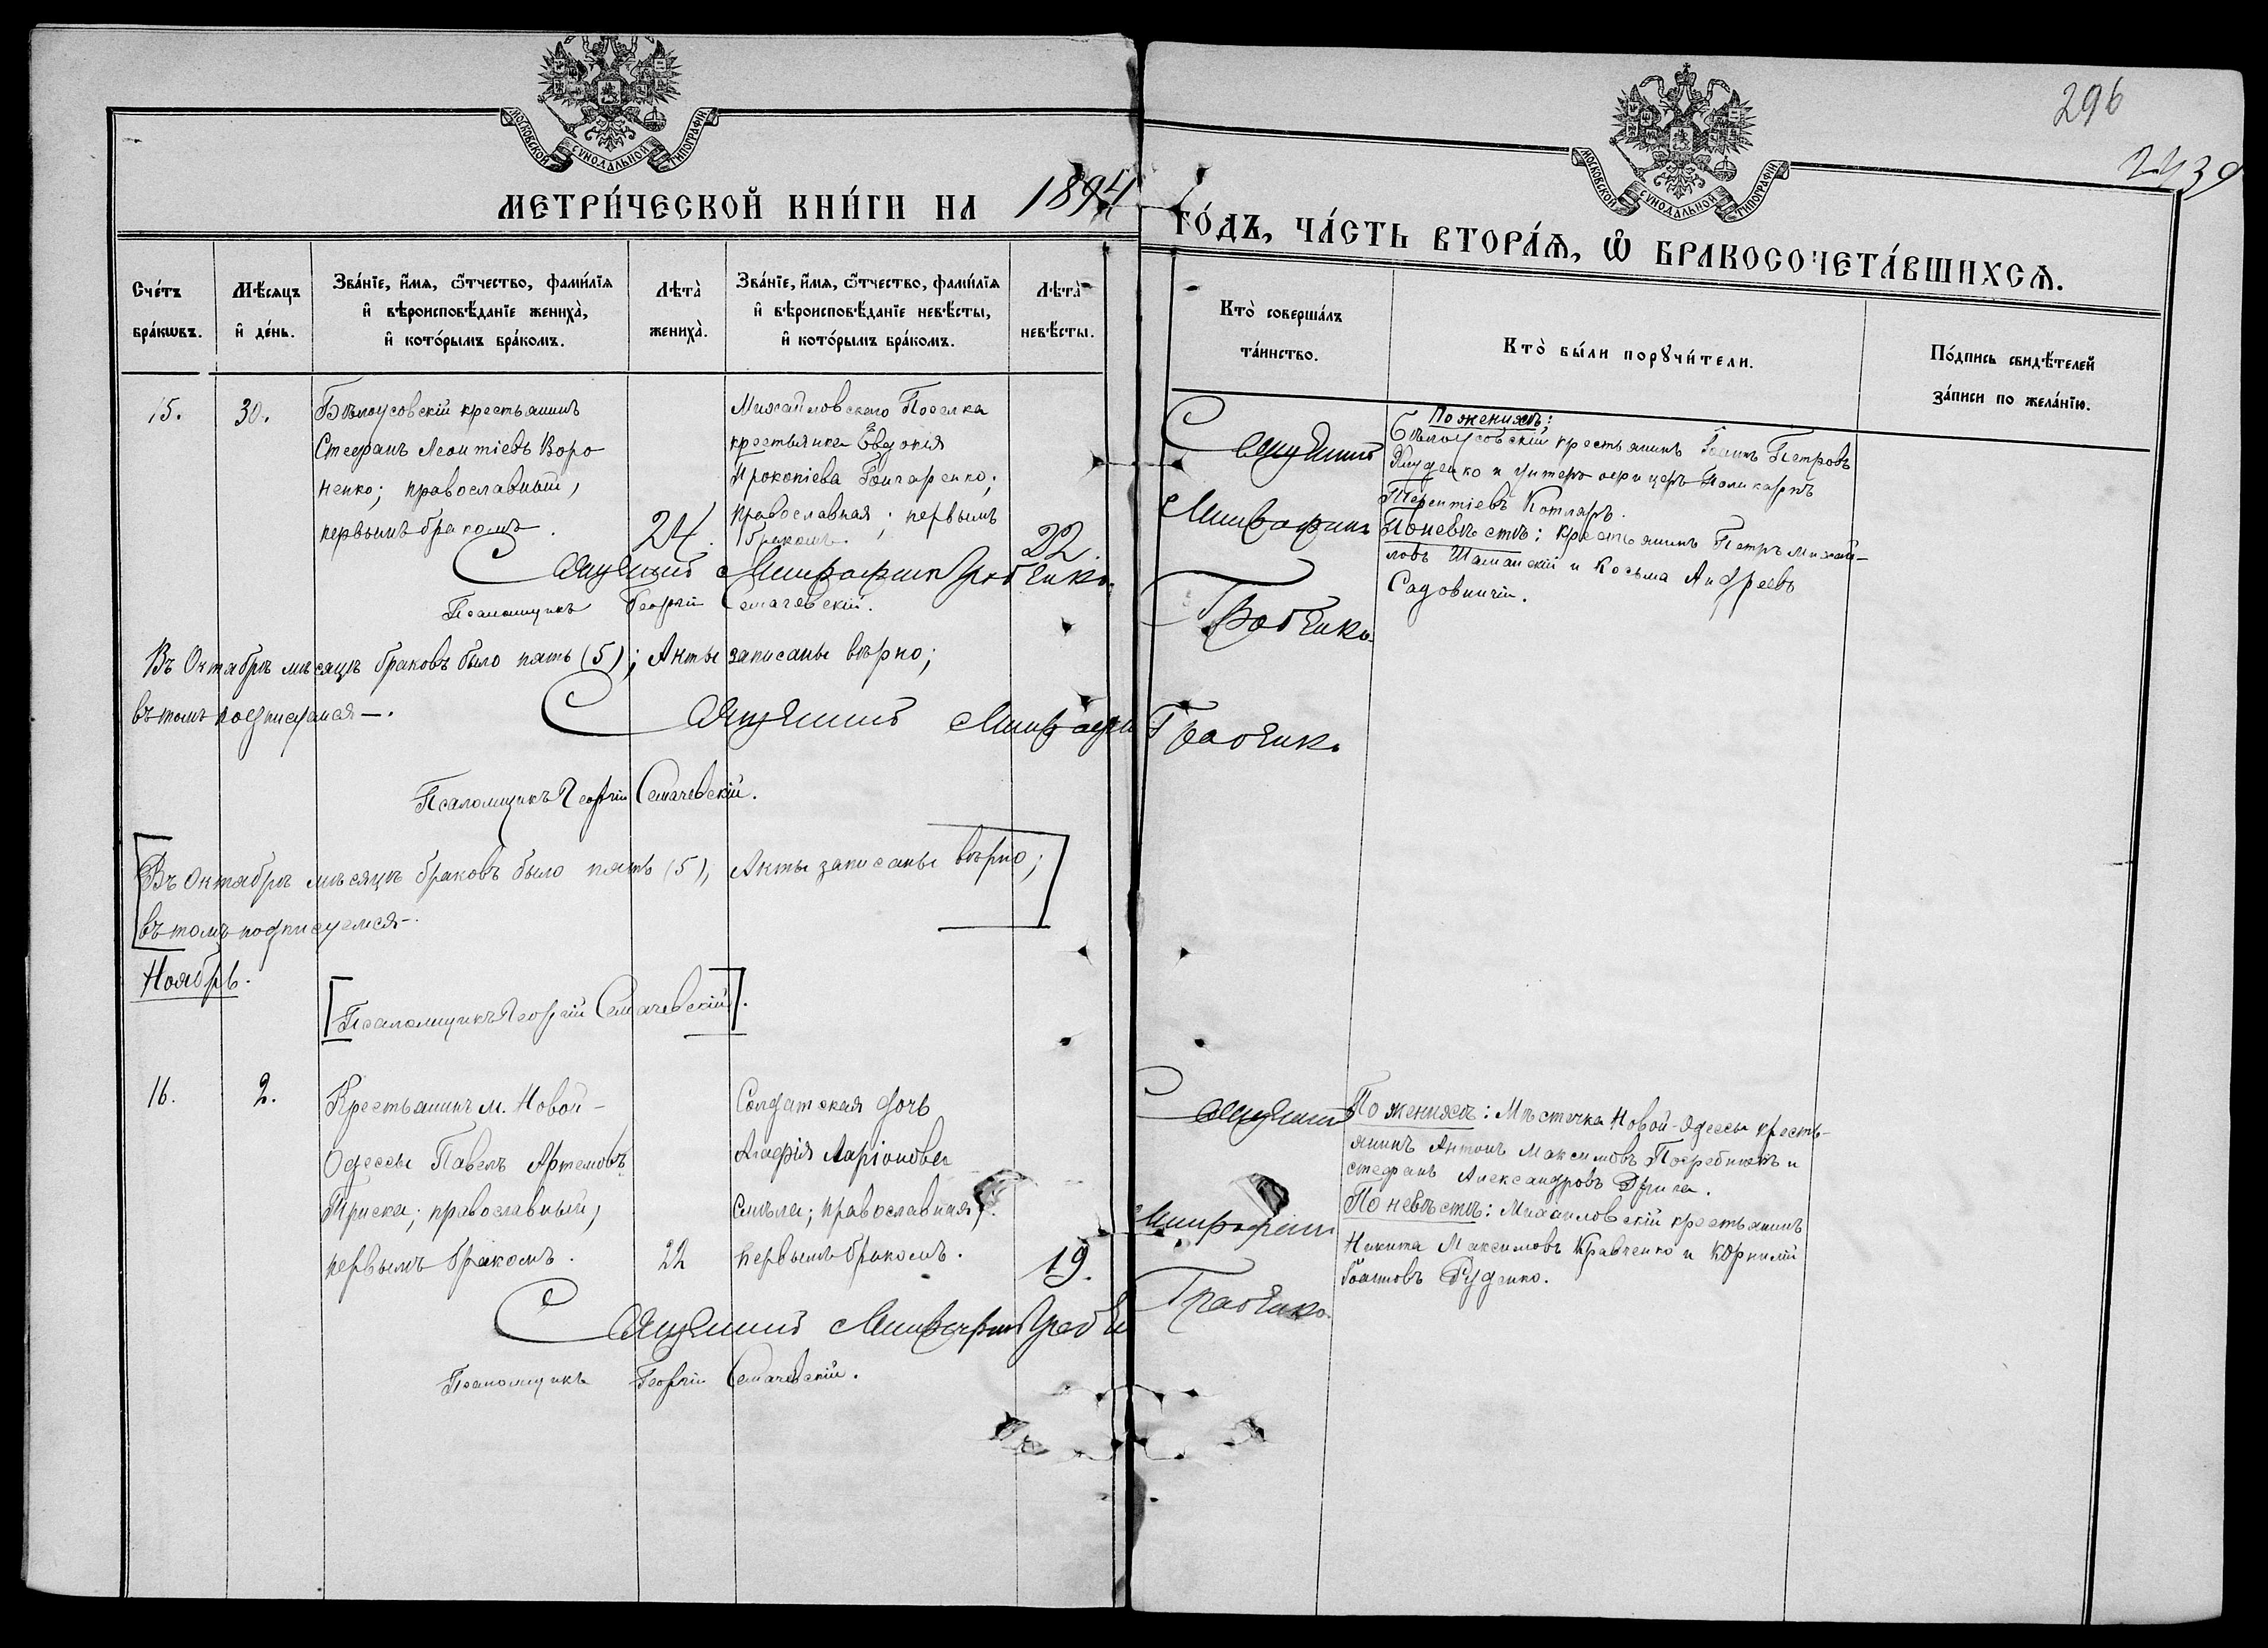 296
2439
МОСКОВСКОЙ СУНОДАЛЬНОЙ ТИПОГРАФІИ
МОСКОВСКОЙ СУНОДАЛЬНОЙ ТИПОГРАФІИ
МЕТРИ́ЧЕСКОЙ КНИ́ГИ НА 1894
ГО́ДЪ, ЧА́СТЬ ВТОРА́Ѧ, Ѽ БРАКОСОЧЕТА́ВШИХСѦ.
Сче́тъ
бра́кωвъ.
Мѣ́сяцъ
и҆ де́нь.
Зва́нїе, и҆́мя, ѻ҆́тчество, фами́лїя
и҆ вѣроисповѣ́данїе жениха̀,
и҆ кото́рымъ бра́комъ.
Лѣта̀
жениха̀.
Зва́нїе, и҆́мя, ѻ҆́тчество, фами́лїя
и҆ вѣроисповѣ́данїе невѣ́сты,
и҆ кото́рымъ бра́комъ.
Лѣта̀
невѣ́сты.
Кто̀ соверша́лъ
та́инство.
Кто̀ бы́ли порꙋчи́тели.
По́дпись свидѣ́телей
за́писи по жела́нїю.
15.
30.
Бѣлоусовскій крестьянинъ
Стефанъ Леонтіевъ Воро
ненко; православный,
первымъ бракомъ.
24.
Михайловскаго Поселка
крестьянка Евдокія
Прокопіева Гончаренко;
православная; первымъ
бракомъ.
22.
Священникъ
Митрофанъ
Гребенко
По женихѣ:
Бѣлоусовскій крестьянинъ Іоаннъ Петровъ
и унтеръ офицеръ Поликарпъ
Терентіевъ Котляръ.
По невѣстѣ: крестьянинъ Петръ Михай-
ловъ Шаманскій и Косьма Андреевъ
Садовничій.
Священникъ Митрофанъ Гребенко
Псаломщикъ Георгій Семачевскій.
Въ Октябрѣ мѣсяцѣ браковъ было пять (5); Акты записаны вѣрно;
въ томъ подписуемся —.
Священникъ Митрофанъ Гребенко
Псаломщикъ Георгій Семачевскій.
Въ Октябрѣ мѣсяцѣ браковъ было пять (5), Акты записаны вѣрно;
въ томъ подписуемся —.
Ноябрь.
Псаломщикъ Георгій Семачевскій.
16.
2.
Крестьянинъ м. Новой-
Одессы Павелъ Артемовъ
Триска; православный,
первымъ бракомъ.
22
Солдатская дочь
Агафія Ларіонова
Смѣла; православная,
первымъ бракомъ.
19.
Священникъ
Митрофанъ
Гребенко
По женихѣ: Мѣстечка Новой-Одессы кресть-
янинъ Антонъ Максимовъ Погребнякъ и
Стефанъ Александровъ
По невѣстѣ: Михайловскій крестьянинъ
Никита Максимовъ Кравченко и Корнилій
Іоанновъ Руденко.
Священникъ Митрофанъ Гребенко
Псаломщикъ Георгій Семачевскій.